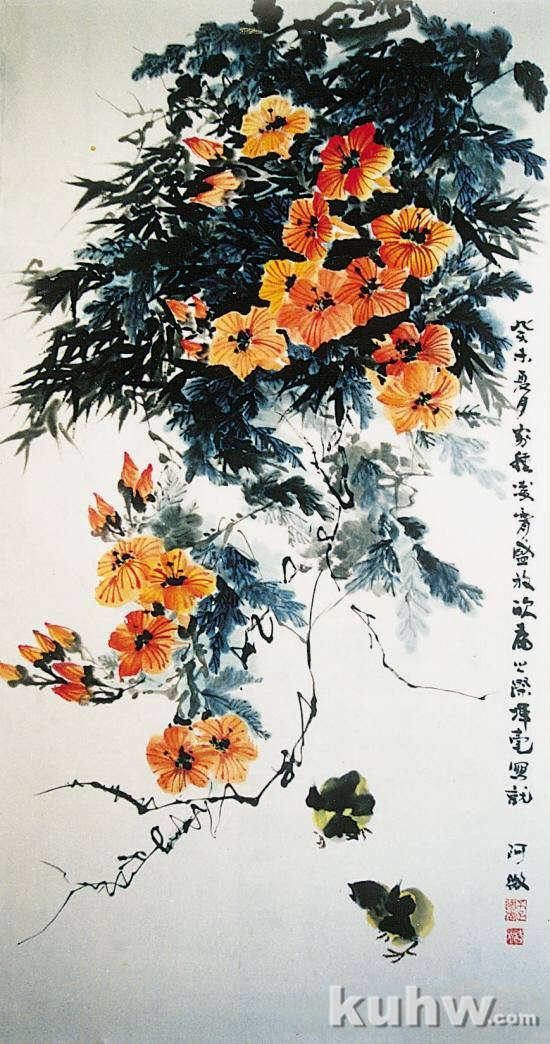 癸未夏月 家種凌霄盛放 欣 之際揮毫寫 
河微
kuhw.com